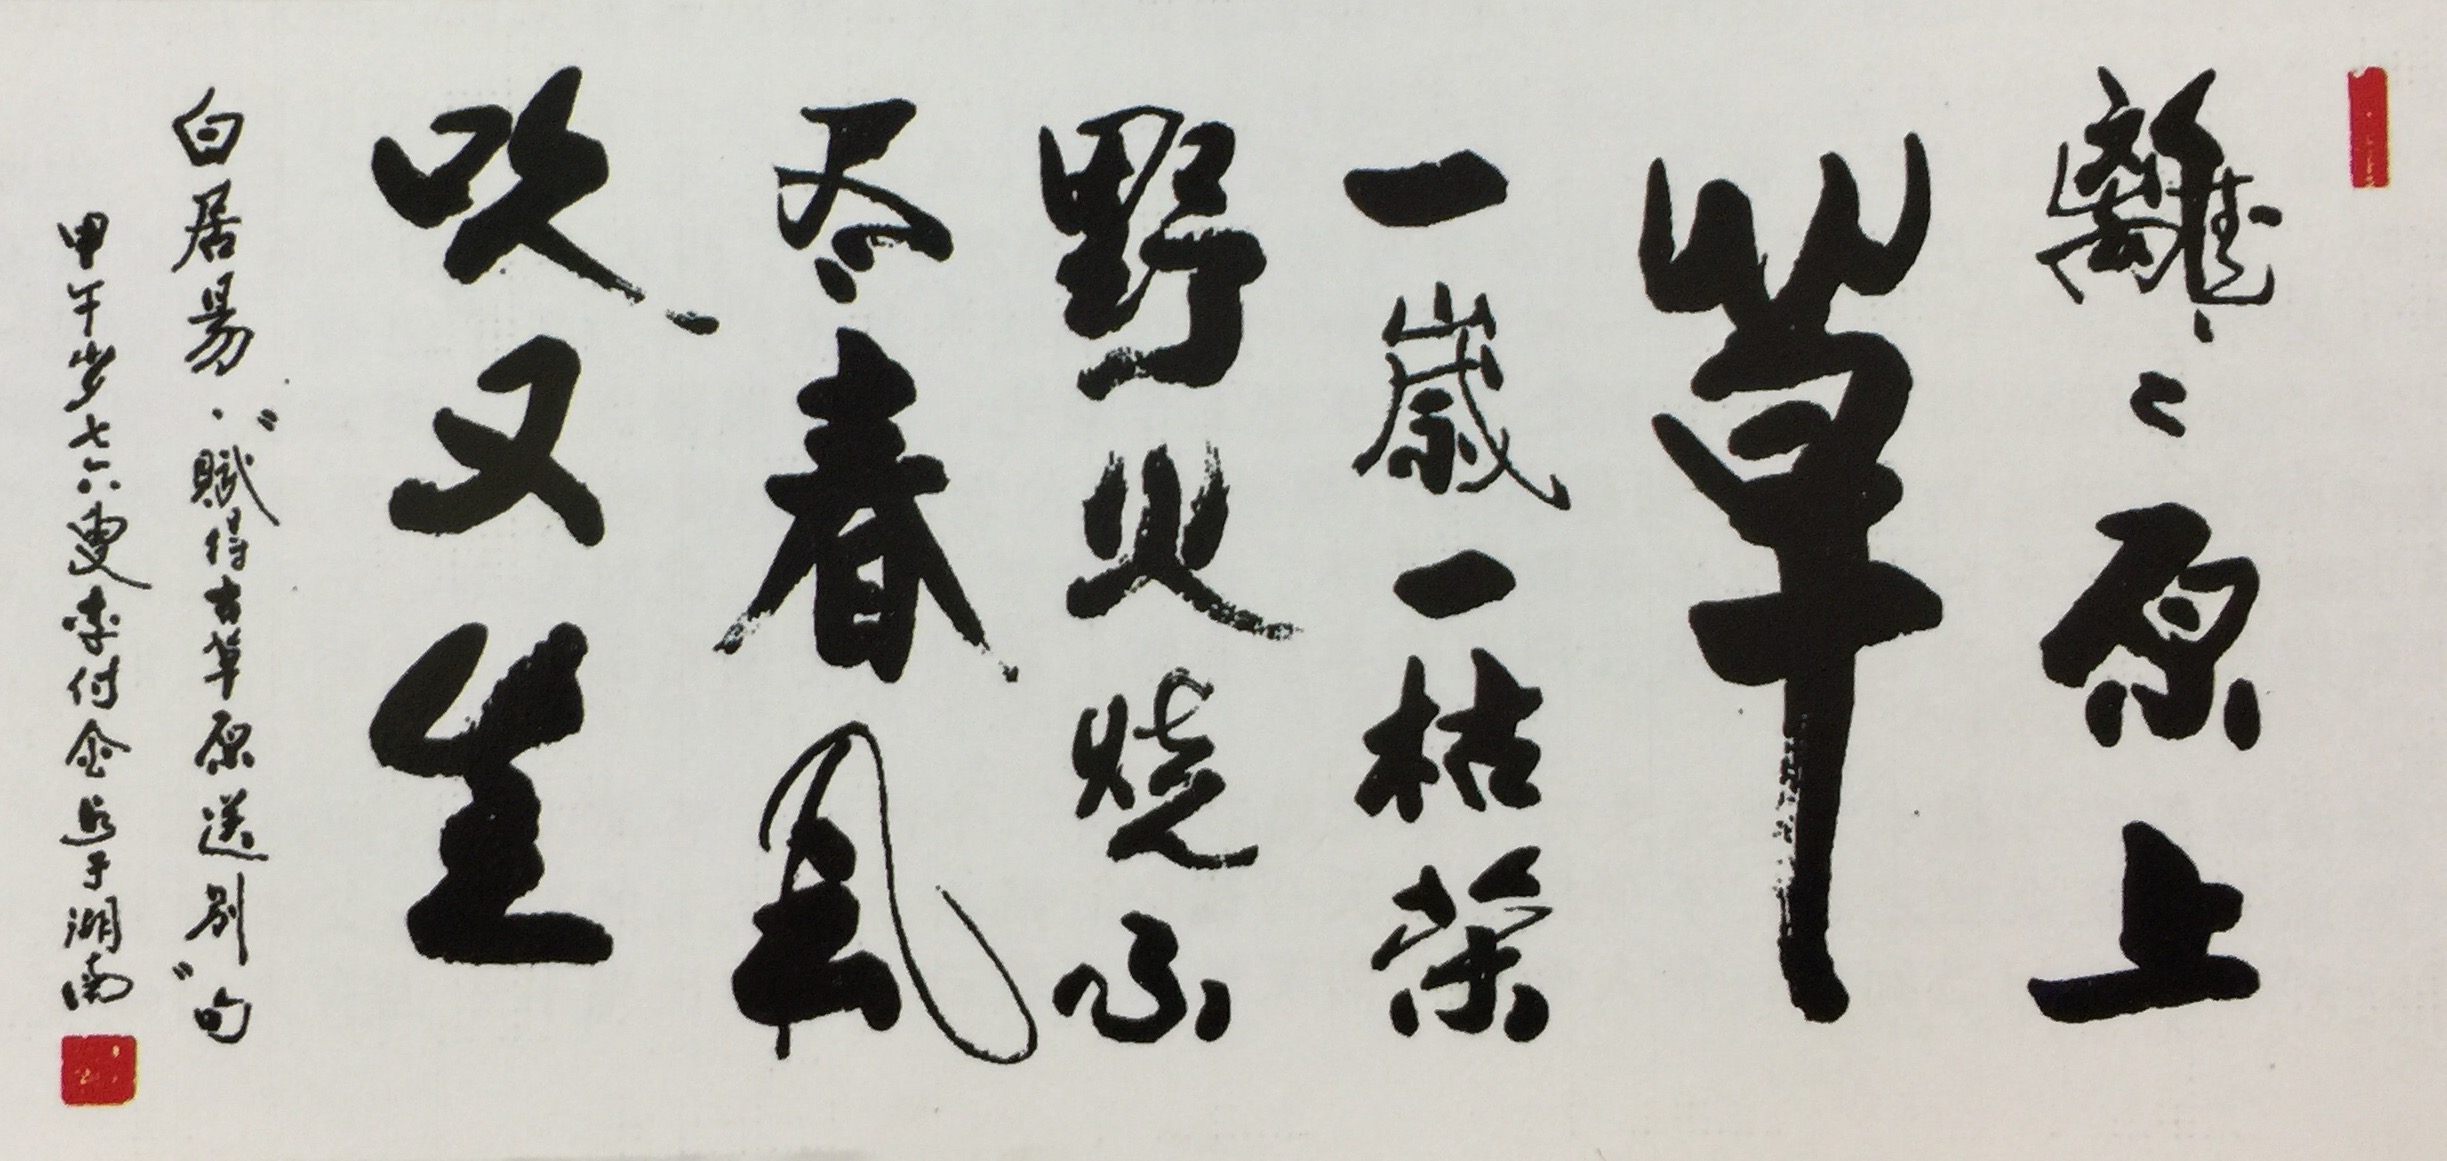 離〻原上
草
一歲一枯榮
野火燒不
尽春風
吹又生
白居易·"賦得古草原送别"句
甲午岁七六叟 付金 于湖南